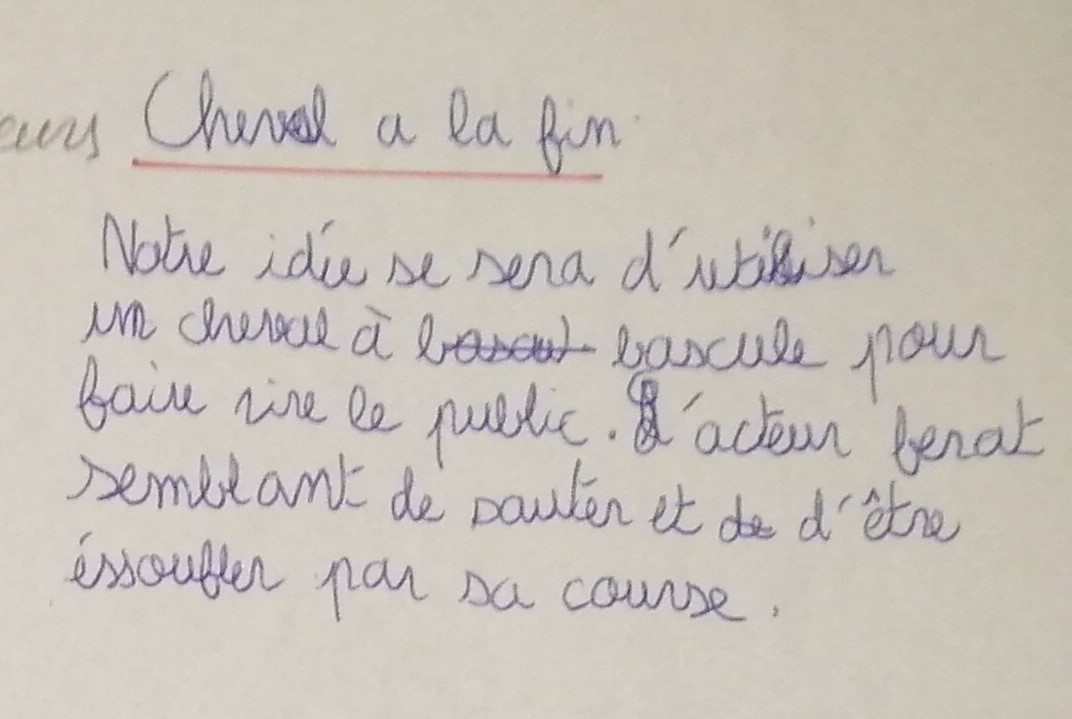 Cheval a la fin
Notre idée se sera d'utiliser
un cheval à bascule pour
faire rire le public. L'acteur ferat
semblant de sauter et de d'être
éssouffler par sa course.